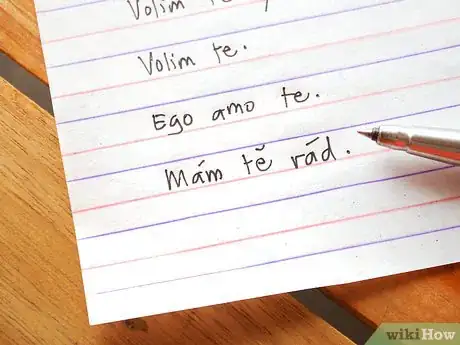 Volim te
Volim te.
Ego amo te.
Mám tě rád.
wikiHow